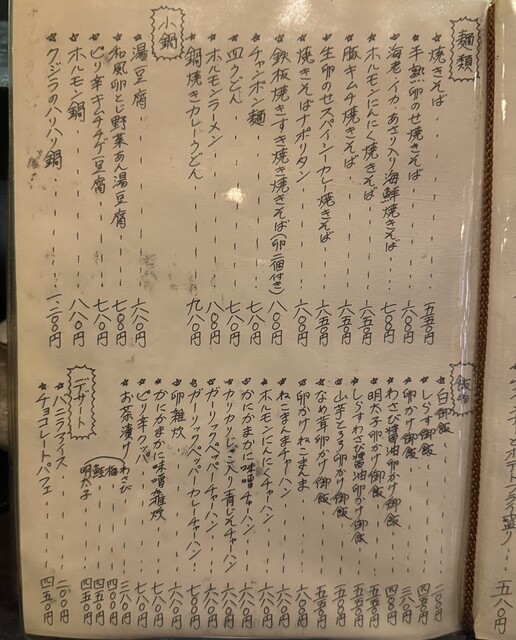 麺類
☆焼きそば 五五〇円
☆半熟卵のせ焼きそば 六八〇円
☆海老・イカ・あさり入り海鮮焼きそば 七八〇円
☆ホルモンにんにく焼きそば 六五〇円
☆豚キムチ焼きそば 六五〇円
☆生卵のせスパイシーカレー焼きそば 六五〇円
☆焼きそばナポリタン 六八〇円
☆鉄板焼きすき焼き焼きそば(卵二個付き) 八〇〇円
☆チャンポン麺 七八〇円
☆皿うどん 七八〇円
☆ホルモンラーメン 八〇〇円
☆鍋焼きカレーうどん 九八〇円
小鍋
☆湯豆腐 六八〇円
☆和風卵とじ野菜あん湯豆腐 七〇〇円
☆ピリ辛キムチチゲ豆腐 七八〇円
☆ホルモン鍋 八八〇円
☆クジラのハリハリ鍋 一、二〇〇円
飯物
☆白御飯 二〇〇円
☆しらす御飯 四五〇円
☆卵かけ御飯 三八〇円
☆わさび醤油卵かけ御飯 四〇〇円
☆明太子卵かけ御飯 五五〇円
☆しらすわさび醤油卵かけ御飯 五五〇円
☆山芋とろろ卵かけ御飯 五五〇円
☆なめ茸卵かけ御飯 五五〇円
☆卵かけねこまんま
☆ねこまんまチャーハン 六八〇円
☆ホルモンにんにくチャーハン 六八〇円
☆かにかまかに味噌チャーハン 七八〇円
☆カリカリじゃこ入り青じそチャーハン 六八〇円
☆ガーリックペッパーチャーハン 六八〇円
☆ガーリックペッパーカレーチャーハン 七〇〇円
☆卵雑炊 六八〇円
☆かにかまかに味噌雑炊 七八〇円
☆ピリ辛クッパ 七八〇円
☆お茶漬け わさび
梅 四〇〇円
鮭 四五〇円
明太子 四五〇円
デザート
☆バニラアイス 二〇〇円
☆チョコレートパフェ 四五〇円
ポテトフライ盛り 五八〇円